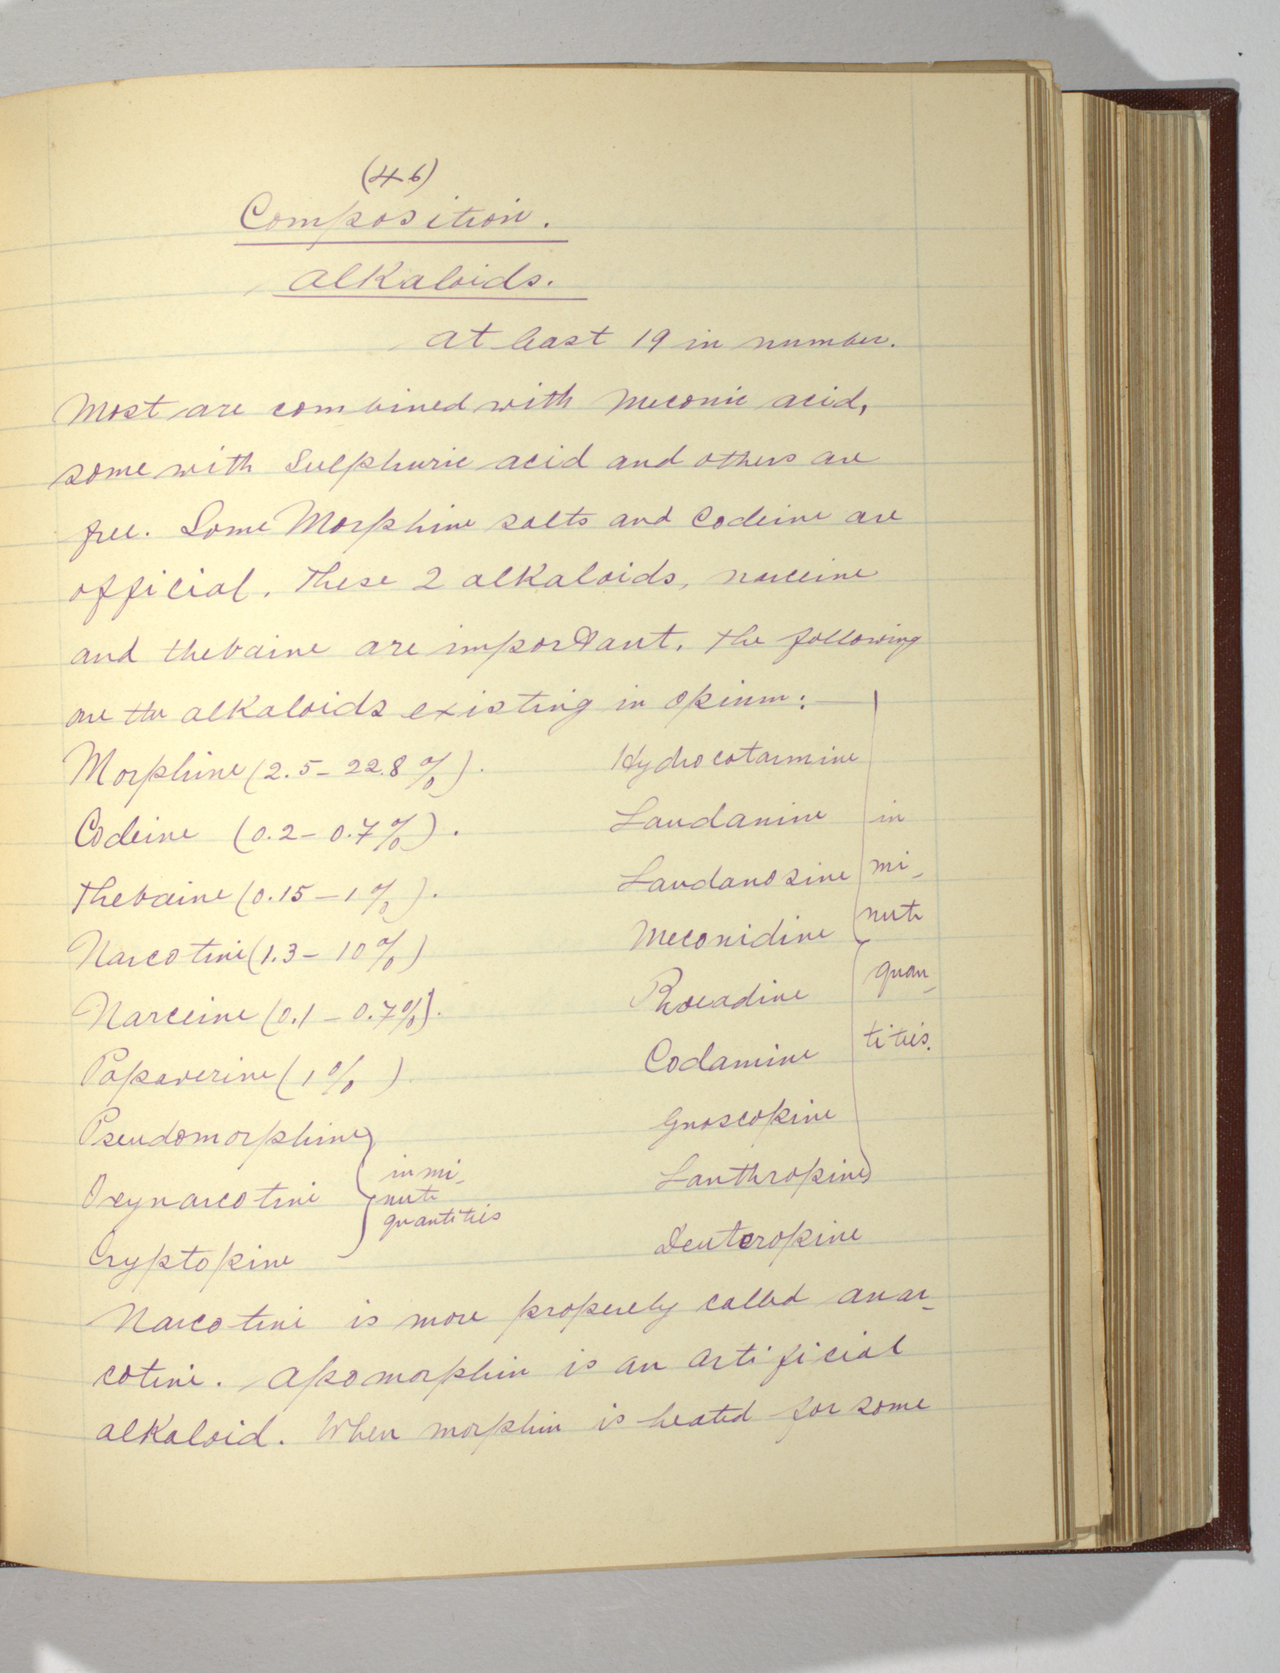 (46)
Composition.
Alkaloids.
At least 19 in number.
Most are combined with Meconic acid,
some with Sulphuric acid and others are
free. Some Morphine salts and Codeine are
official. These 2 alkaloids, narceine
and thebaine are important. The following
are the alkaloids existing in Opium:—
Morphine (2.5 – 22.8 %).
Codeine (0.2 – 0.7%).
Thebaine (0.15 – 1 %).
Narcotine (1.3 – 10 %)
Narceine (0.1 – 0.7%).
Papaverine ( 1 % )
Pseudomorphine
Oxynarcotine
Cryptopine
in mi-
nute
quantities
Hydrocotarnine
Laudanine
Laudanosine
Meconidine
Rhoeadine
Codamine
Gnoscopine
Lanthropine
Deuteropine
in
mi-
nute
quan-
tities.
Narcotine is more properely called anar-
cotine. Apomorphin is an artificial
alkaloid. When morphin is heated for some